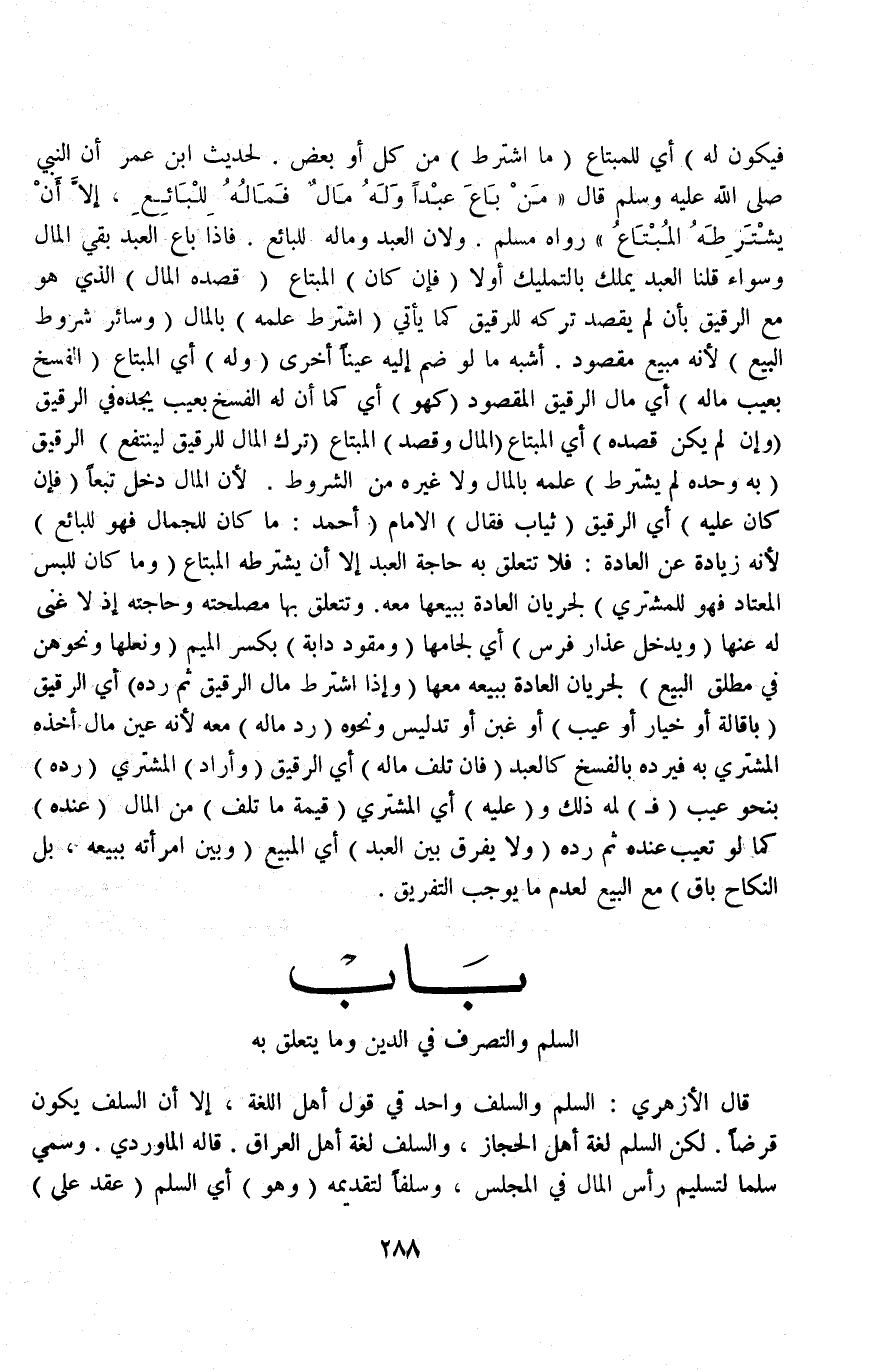 فيكون له ) أي للمبتاع ( ما اشترط ) من كل أو بعض . لحديث ابن عمر أن النبي
صلى الله عليه وسلم قال « مَنْ بَاعَ عبْداً وَلَهُ مَالٌ فَمَالُهُ لِلْبَائِعِ ، إلاَّ أَنْ
يشْتَرِطَهُ المُبْتَاعُ » رواه مسلم . ولان العبد وماله للبائع . فاذا باع العبد بقي المال
وسواء قلنا العبد يملك بالتمليك أولا ( فإن كان ) المبتاع ( قصده المال ) الذي هو
مع الرقيق بأن لم يقصد تركه للرقيق كما يأتي ( اشترط علمه ) بالمال ( وسائر شروط
البيع ) لأنه مبيع مقصود . أشبه ما لو ضم إليه عيناً أخرى ( وله ) أي المبتاع ( الفسخ
بعيب ماله ) أي مال الرقيق المقصود (كهو ) أي كما أن له الفسخ بعيب يجده في الرقيق
(وإن لم يكن قصده ) أي المبتاع (المال وقصد ) المبتاع (ترك المال للرقيق لينتفع ) الرقيق
( به وحده لم يشترط ) علمه بالمال ولا غيره من الشروط . لأن المال دخل تبعاً ( فإن
كان عليه ) أي الرقيق ( ثياب فقال ) الامام ( أحمد : ما كان للجمال فهو للبائع )
لأنه زيادة عن العادة : فلا تتعلق به حاجة العبد إلا أن يشترطه المبتاع ( وما كان للبس
المعتاد فهو للمشتري ) لجريان العادة ببيعها معه. وتتعلق بها مصلحته وحاجته إذ لا غنى
له عنها ( ويدخل عذار فرس ) أي لجامها ( ومقود دابة ) بكسر الميم ( ونعلها ونحوهن
في مطلق البيع ) لجريان العادة ببيعه معها ( وإذا اشترط مال الرقيق ثم رده) أي الرقيق
( باقالة أو خيار أو عيب ) أو غبن أو تدليس ونحوه ( رد ماله ) معه لأنه عين مال أخذه
المشتري به فيرده بالفسخ كالعبد ( فان تلف ماله ) أي الرقيق ( وأراد ) المشتري ( رده )
بنحو عيب ( فـ ) له ذلك و ( عليه ) أي المشتري ( قيمة ما تلف ) من المال ( عنده )
كما لو تعيب عنده ثم رده ( ولا يفرق بين العبد ) أي المبيع ( وبين امرأته ببيعه ، بل
النكاح باق ) مع البيع لعدم ما يوجب التفريق .
بَابْ
السلم والتصرف في الدين وما يتعلق به
قال الأزهري : السلم والسلف واحد في قول أهل اللغة ، إلا أن السلف يكون
قرضاً . لكن السلم لغة أهل الحجاز ، والسلف لغة أهل العراق . قاله الماوردي . وسمي
سلما لتسليم رأس المال في المجلس ، وسلفاً لتقديمه ( وهو ) أي السلم ( عقد على )
٢٨٨